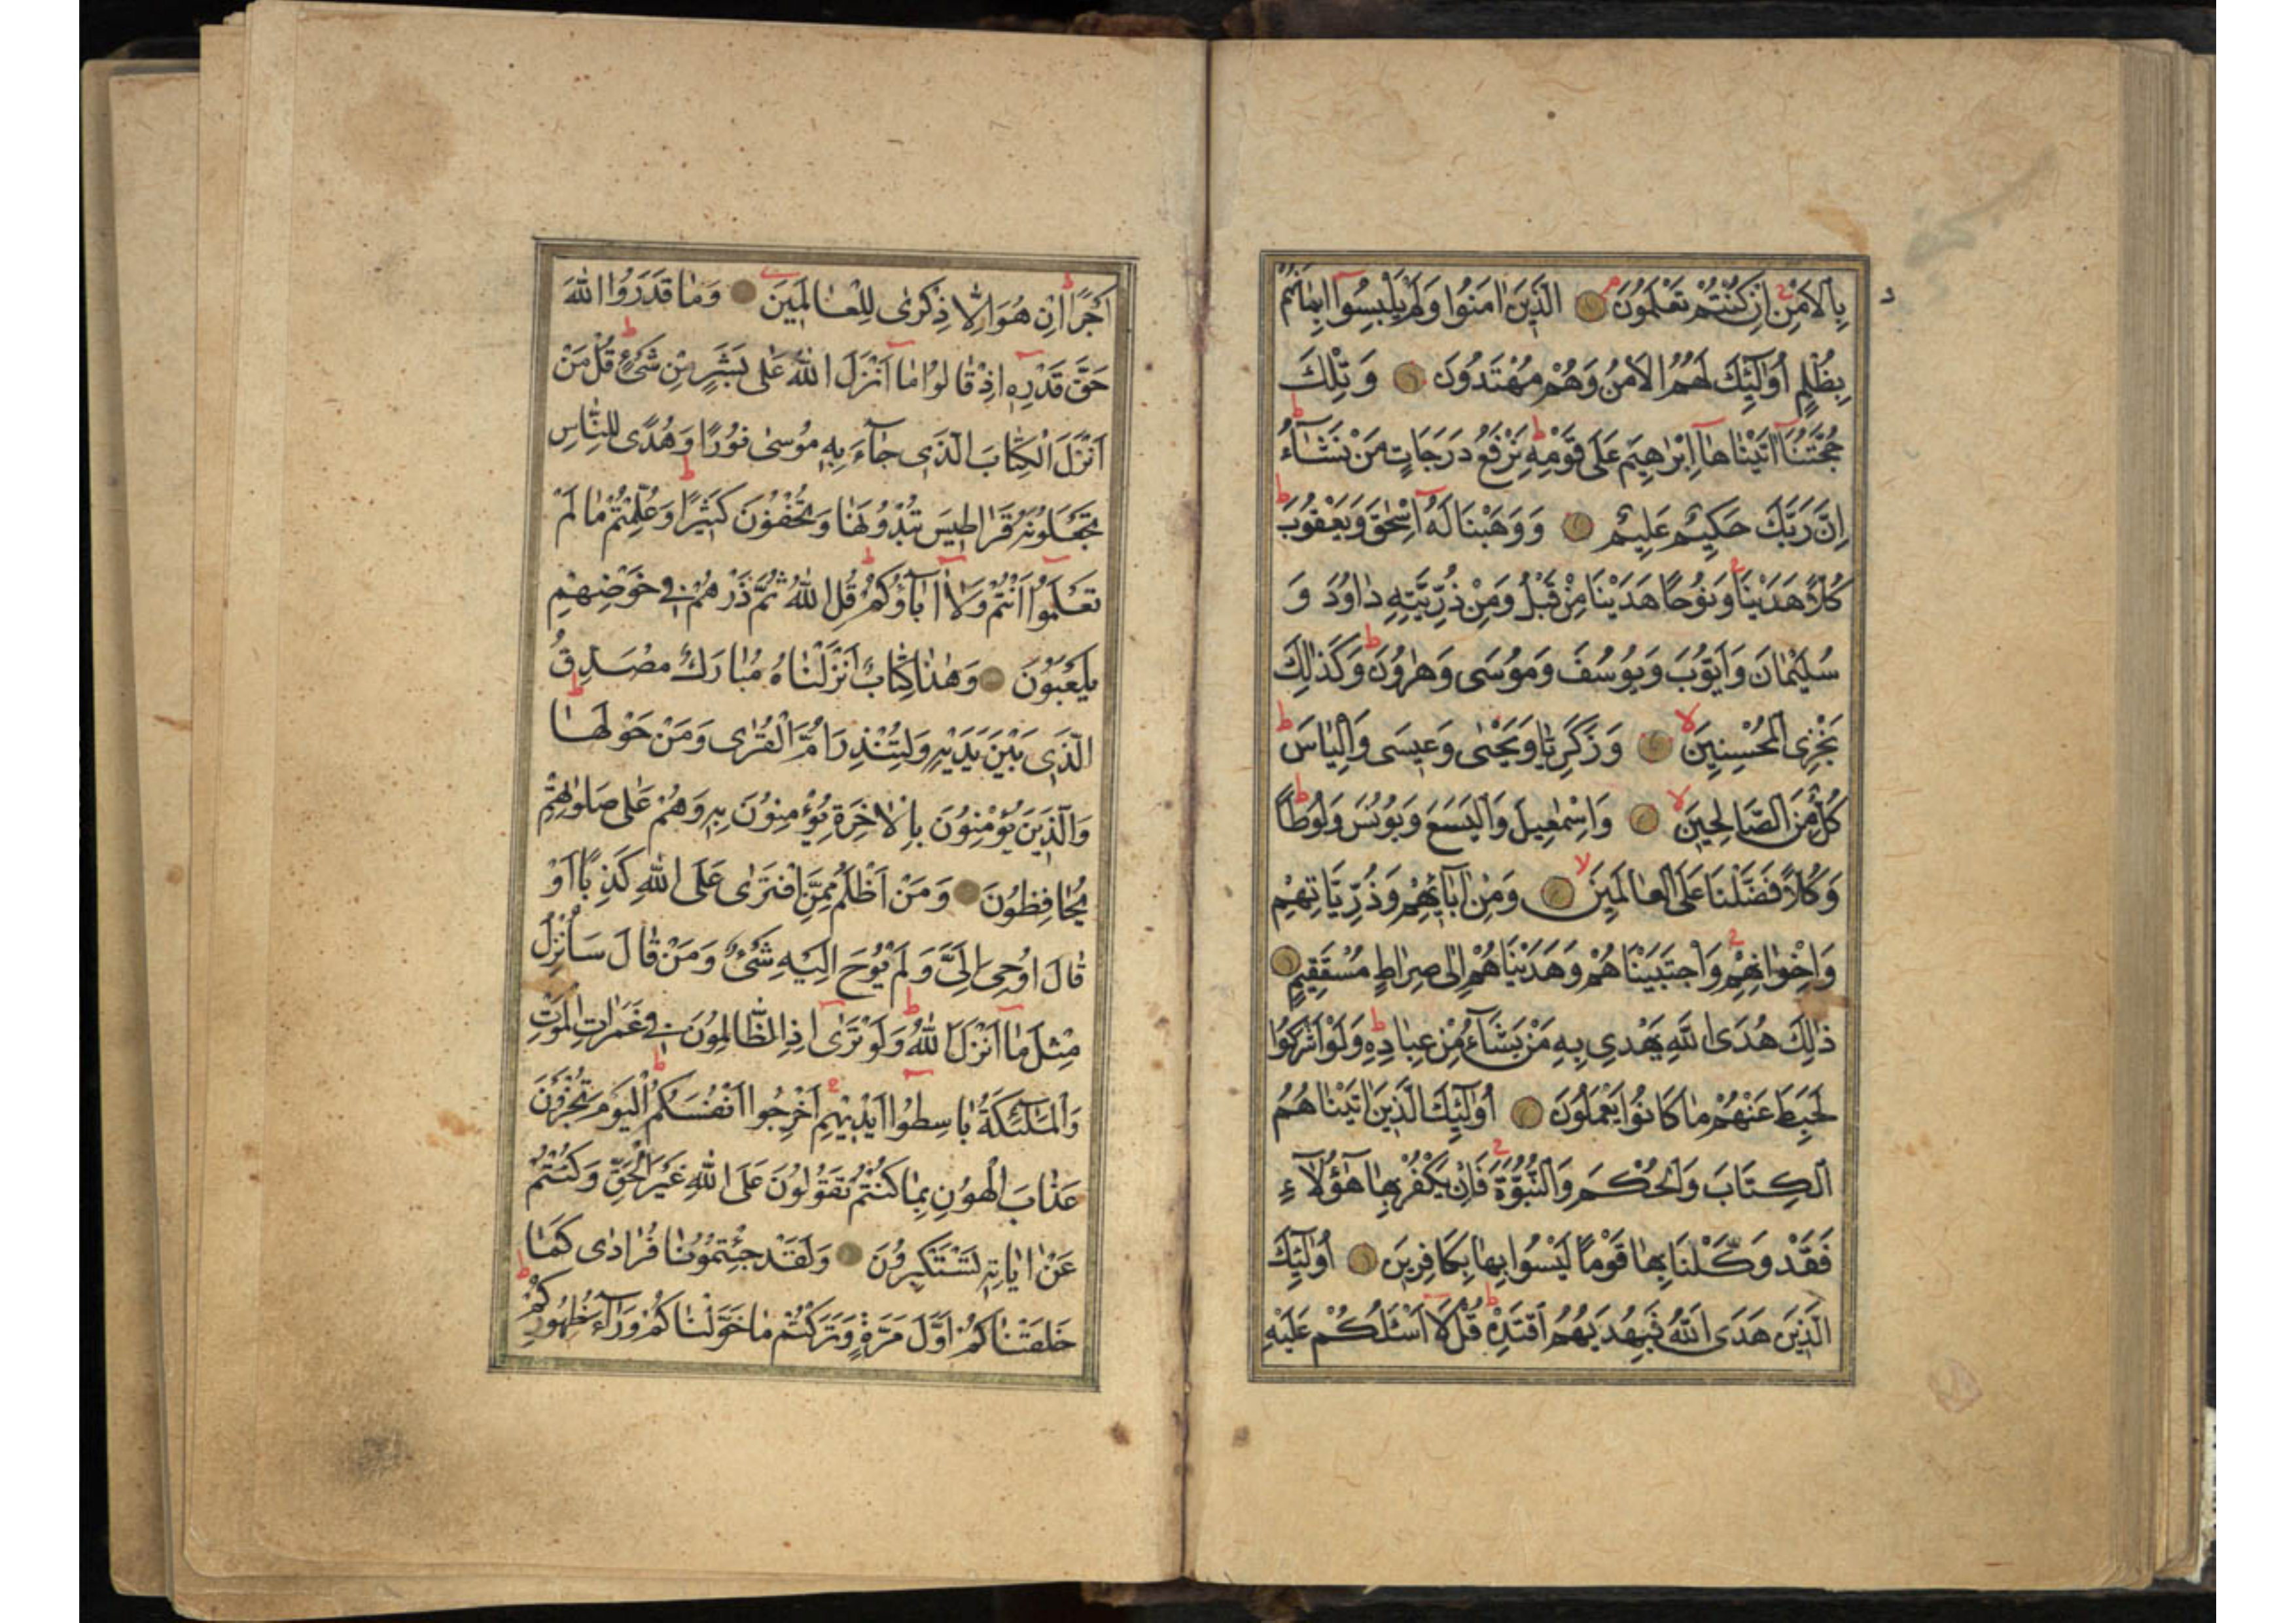 بِالْاَمْنِ اِنْ كُنْتُمْ تَعْلَمُونَ الَّذِينَ اٰمَنُوا وَلَمْ يَلْبِسُوا اِيمَانَهُمْ
بِظُلْمٍ اُولٰٓئِكَ لَهُمُ الْاَمْنُ وَهُمْ مُهْتَدُونَ وَتِلْكَ
حُجَّتُنَآ اٰتَيْنَاهَآ اِبْرٰهِيمَ عَلٰى قَوْمِهٖ نَرْفَعُ دَرَجَاتٍ مَنْ نَشَآءُ
اِنَّ رَبَّكَ حَكِيمٌ عَلِيمٌ وَوَهَبْنَا لَهُٓ اِسْحٰقَ وَيَعْقُوبَ
كُلًّا هَدَيْنَا وَنُوحًا هَدَيْنَا مِنْ قَبْلُ وَمِنْ ذُرِّيَّتِهٖ دَاوُدَ وَ
سُلَيْمَانَ وَاَيُّوبَ وَيُوسُفَ وَمُوسٰى وَهٰرُونَ وَكَذٰلِكَ
نَجْزِى الْمُحْسِنِينَ وَزَكَرِيَّا وَيَحْيٰى وَعِيسٰى وَاِلْيَاسَ
كُلٌّ مِنَ الصَّالِحِينَ وَاِسْمٰعِيلَ وَالْيَسَعَ وَيُونُسَ وَلُوطًا
وَكُلًّا فَضَّلْنَا عَلَى الْعَالَمِينَ وَمِنْ اٰبَآئِهِمْ وَذُرِّيَّاتِهِمْ
وَاِخْوَانِهِمْ وَاجْتَبَيْنَاهُمْ وَهَدَيْنَاهُمْ اِلٰى صِرَاطٍ مُسْتَقِيمٍ
ذٰلِكَ هُدَى اللّٰهِ يَهْدِى بِهٖ مَنْ يَشَآءُ مِنْ عِبَادِهٖ وَلَوْ اَشْرَكُوا
لَحَبِطَ عَنْهُمْ مَا كَانُوا يَعْمَلُونَ اُولٰٓئِكَ الَّذِينَ اٰتَيْنَاهُمُ
الْكِتَابَ وَالْحُكْمَ وَالنُّبُوَّةَ فَاِنْ يَكْفُرْ بِهَا هٰٓؤُلَآءِ
فَقَدْ وَكَّلْنَا بِهَا قَوْمًا لَيْسُوا بِهَا بِكَافِرِينَ اُولٰٓئِكَ
الَّذِينَ هَدَى اللّٰهُ فَبِهُدٰيهُمُ اقْتَدِهْ قُلْ لَآ اَسْئَلُكُمْ عَلَيْهِ
اَجْرًا اِنْ هُوَ اِلَّا ذِكْرٰى لِلْعَالَمِينَ وَمَا قَدَرُوا اللّٰهَ
حَقَّ قَدْرِهٖٓ اِذْ قَالُوا مَآ اَنْزَلَ اللّٰهُ عَلٰى بَشَرٍ مِنْ شَىْءٍ قُلْ مَنْ
اَنْزَلَ الْكِتَابَ الَّذِى جَآءَ بِهٖ مُوسٰى نُورًا وَهُدًى لِلنَّاسِ
تَجْعَلُونَهُ قَرَاطِيسَ تُبْدُونَهَا وَتُخْفُونَ كَثِيرًا وَعُلِّمْتُمْ مَا لَمْ
تَعْلَمُوٓا اَنْتُمْ وَلَآ اٰبَآؤُكُمْ قُلِ اللّٰهُ ثُمَّ ذَرْهُمْ فِى خَوْضِهِمْ
يَلْعَبُونَ وَهٰذَا كِتَابٌ اَنْزَلْنَاهُ مُبَارَكٌ مُصَدِّقُ
الَّذِى بَيْنَ يَدَيْهِ وَلِتُنْذِرَ اُمَّ الْقُرٰى وَمَنْ حَوْلَهَا
وَالَّذِينَ يُؤْمِنُونَ بِالْاٰخِرَةِ يُؤْمِنُونَ بِهٖ وَهُمْ عَلٰى صَلَوٰتِهِمْ
يُحَافِظُونَ وَمَنْ اَظْلَمُ مِمَّنِ افْتَرٰى عَلَى اللّٰهِ كَذِبًا اَوْ
قَالَ اُوحِىَ اِلَىَّ وَلَمْ يُوحَ اِلَيْهِ شَىْءٌ وَمَنْ قَالَ سَاُنْزِلُ
مِثْلَ مَآ اَنْزَلَ اللّٰهُ وَلَوْ تَرٰٓى اِذِ الظَّالِمُونَ فِى غَمَرَاتِ الْمَوْتِ
وَالْمَلٰٓئِكَةُ بَاسِطُوٓا اَيْدِيهِمْ اَخْرِجُوا اَنْفُسَكُمْ اَلْيَوْمَ تُجْزَوْنَ
عَذَابَ الْهُونِ بِمَا كُنْتُمْ تَقُولُونَ عَلَى اللّٰهِ غَيْرَ الْحَقِّ وَكُنْتُمْ
عَنْ اٰيَاتِهٖ تَسْتَكْبِرُونَ وَلَقَدْ جِئْتُمُونَا فُرَادٰى كَمَا
خَلَقْنَاكُمْ اَوَّلَ مَرَّةٍ وَتَرَكْتُمْ مَا خَوَّلْنَاكُمْ وَرَآءَ ظُهُورِكُمْ